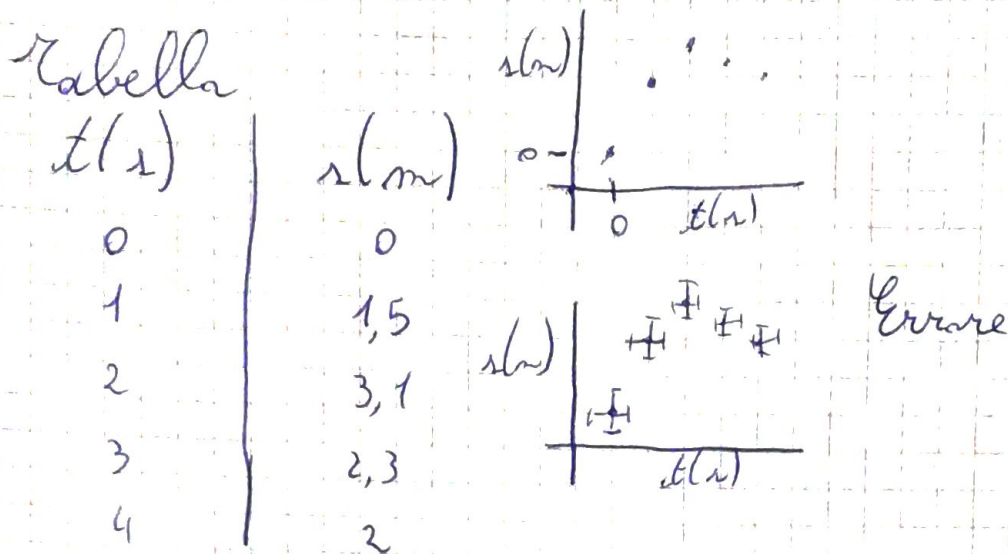 Tabella
t(s) s(m)
0 0
1 1,5
2 3,1
3 2,3
4 2
s(m)
0
0 t(s)
s(m)
t(s)
Errore